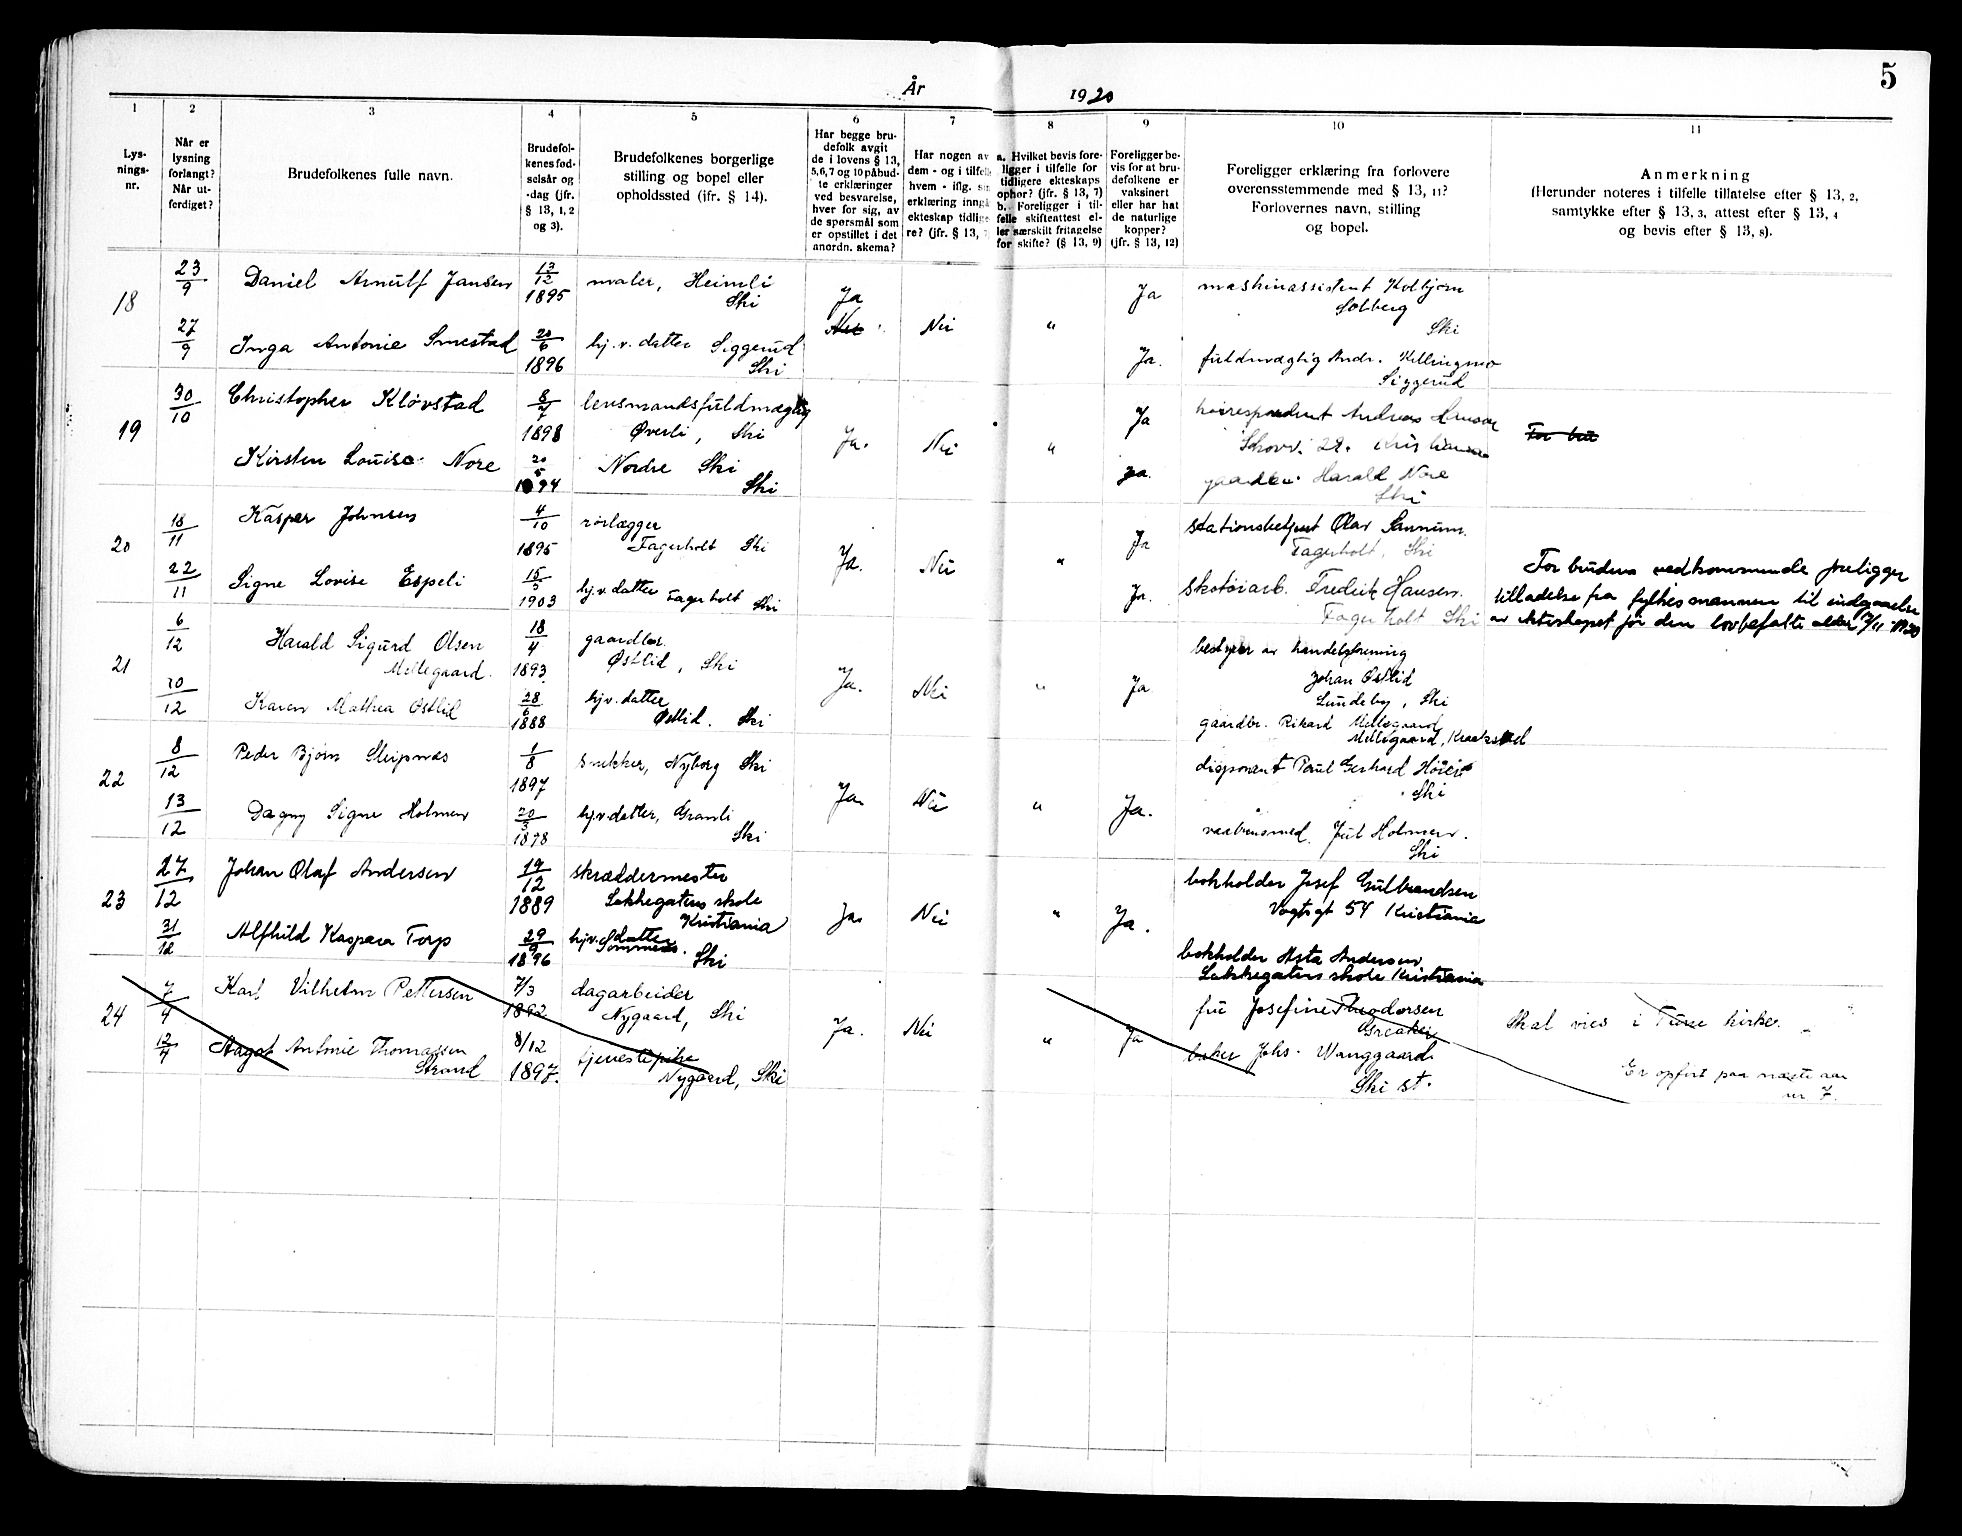 5
År 1920
1 2 3 4 5 6 7 8 9 10 11
Lys-
nings-
nr.
Når er
lysning
forlangt?
Når ut-
ferdiget?
Brudefolkenes fulle navn.
Brudefol-
kenes fød-
selsår og
-dag (jfr.
§ 13, 1, 2
og 3).
Brudefolkenes borgerlige
stilling og bopel eller
opholdssted (ifr. § 14).
Har begge bru-
defolk avgit
de i lovens § 13,
5, 6, 7 og 10 påbud-
te erklæringer
ved besvarelse,
hver for sig, av
de spørsmål som
er opstillet i det
anordn. skema?
Har nogen av
dem - og i tilfelle
hvem - iflg. sin
erklæring inngå
ekteskap tidlige-
re? (jfr. § 13, 7
a. Hvilket bevis fore-
ligger i tilfelle for
tidligere ekteskaps
ophør? (jfr. § 13, 7)
b. Foreligger i til-
felle skifteattest el-
ler særskilt fritagelse
for skifte? (§ 13, 9)
Foreligger be-
vis for at bru-
defolkene er
vaksinert
eller har hat
de naturlige
kopper?
(jfr. § 13, 12)
Foreligger erklæring fra forlovere
overensstemmende med § 13, 11?
Forlovernes navn, stilling
og bopel.
Anmerkning
(Herunder noteres i tilfelle tillatelse efter § 13, 2,
samtykke efter § 13, 3, attest efter § 13, 4
og bevis efter § 13, 8).
18
23/9
Daniel Arnulf Jansen
13/12
1895
maler, Heimli
Ski
Ja
Nei
Nei
"
Ja
maskinassistent Kolbjørn
Solberg
Ski
27/9
Inga Antonie Smestad
20/6
1896
hj.v. datter Siggerud
Ski
Ja.
fuldmægtig Andr. Killingmo
Siggerud
19
30/10
Christopher Kløvstad
8/7
1898
lensmandsfuldmægtig
Øverli, Ski
Ja.
Nei
"
Ja
korrespondent Andreas Hansen
Skovv. 28. Kristiania
For bru
Kirsten Louise Nore
20/5
1894
Nordre Ski
Ski
Ja.
gaardbr. Harald Nore
Ski
20
18/11
Kasper Johnsen
4/10
1895
rørlægger
Fagerholt Ski
Ja.
Nei
"
Ja
stationsbetjent Olav Sannum.
Fagerholt, Ski
22/11
Signe Lovise Espeli
15/5
1903
hj.v. datter
Fagerholt Ski
Ja.
skotøiarb. Fredrik Hansen.
Fagerholt Ski
For brudens vedkommende foreligger
tilladelse fra fylkesmannen til indgaaelse
av ekteskapet før den lovbefalte alder 9/11 1920
21
6/12
Harald Sigurd Olsen
Mellegaard.
18/4
1893.
gaardbr.
Østlid, Ski
Ja.
Nei
"
Ja
bestyrer av handelsforening
Johan Østlid
Lundeby, Ski
10/12
Karen Mathea Østlid
28/6
1888
hj.v. datter
Østlid. Ski
gaardbr. Rikard Mellegaard
Mellegaard, Kraakstad
22
8/12
Peder Bjørn Sleipnæs
1/8
1897
snekker, Nyborg Ski
Ja.
Nei
"
Ja.
disponent Paul Gerhard Høier
Ski
13/12
Dagny Signe Holmen
20/3
1898
hj.v. datter, Granli
Ski
vaabensmed. Juul Holmen.
Ski
23
27/12
Johan Olaf Andersen
19/12
1889
skræddermester
Lakkegatens skole
Kristiania
Ja.
Nei
"
Ja.
bokholder Josef Gulbrandsen
Vogtsgt 54 Kristiania
31/12
Alfhild Kaspara Torp
29/9
1896
hj.v. datter
Sommero.
Ski
bokholder Asta Andersen
Lakkegatens skole Kristiania
24
7/4
Karl Vilhelm Pettersen
7/3
1892
dagarbeider
Nygaard, Ski
Ja.
Nei
"
Ja
fru Josefine Theodorsen
Greaker
Skal vies i Tune kirke.
12/4
Aagot Antonie Thomassen
Strand
8/12
1897.
tjenestepike
Nygaard, Ski
baker Johs. Wanggaard
Ski st.
Er opført paa næste aar
nr 7.